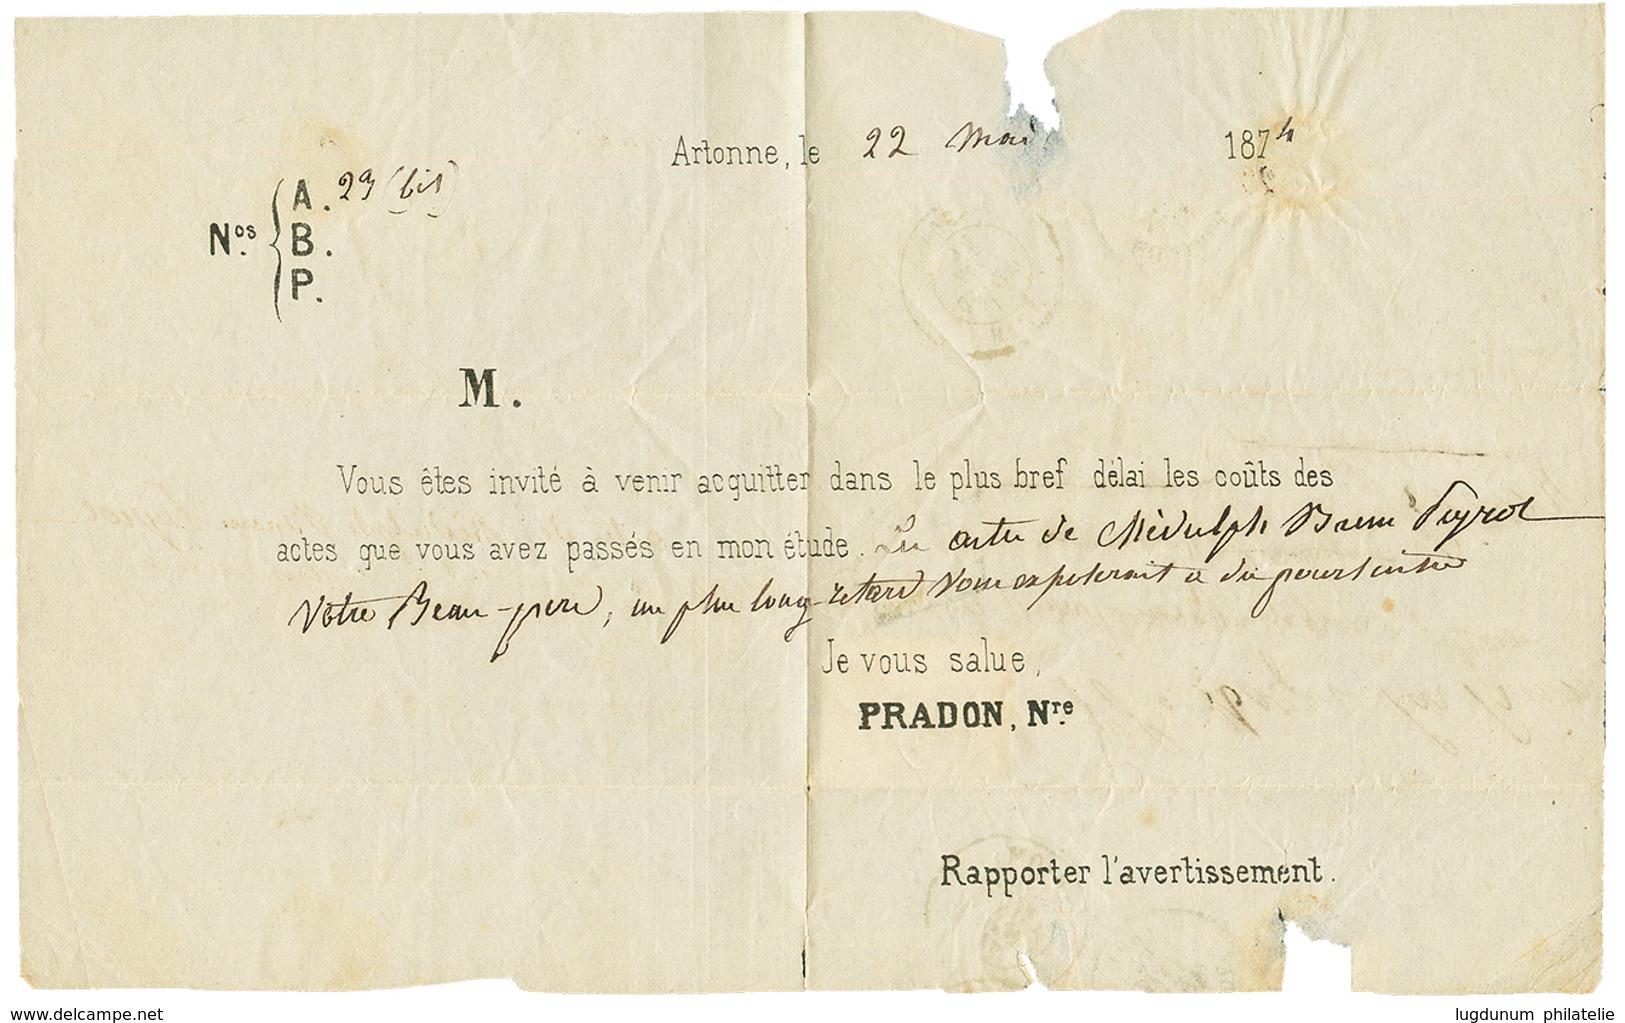 Artonne, le 22 Mai 1874
A. 29 (bis)
Nos. B.
P.
M.
Vous êtes invité à venir acquitter dans le plus bref délai les coûts des
actes que vous avez passés en mon étude. de Médulph Peyrol
Votre Beau-père, un plus long retard vous exposerait à des poursuites
Je vous salue,
PRADON, Nre
Rapporter l'avertissement.
www.delcampe.net
lugdunum philatelie